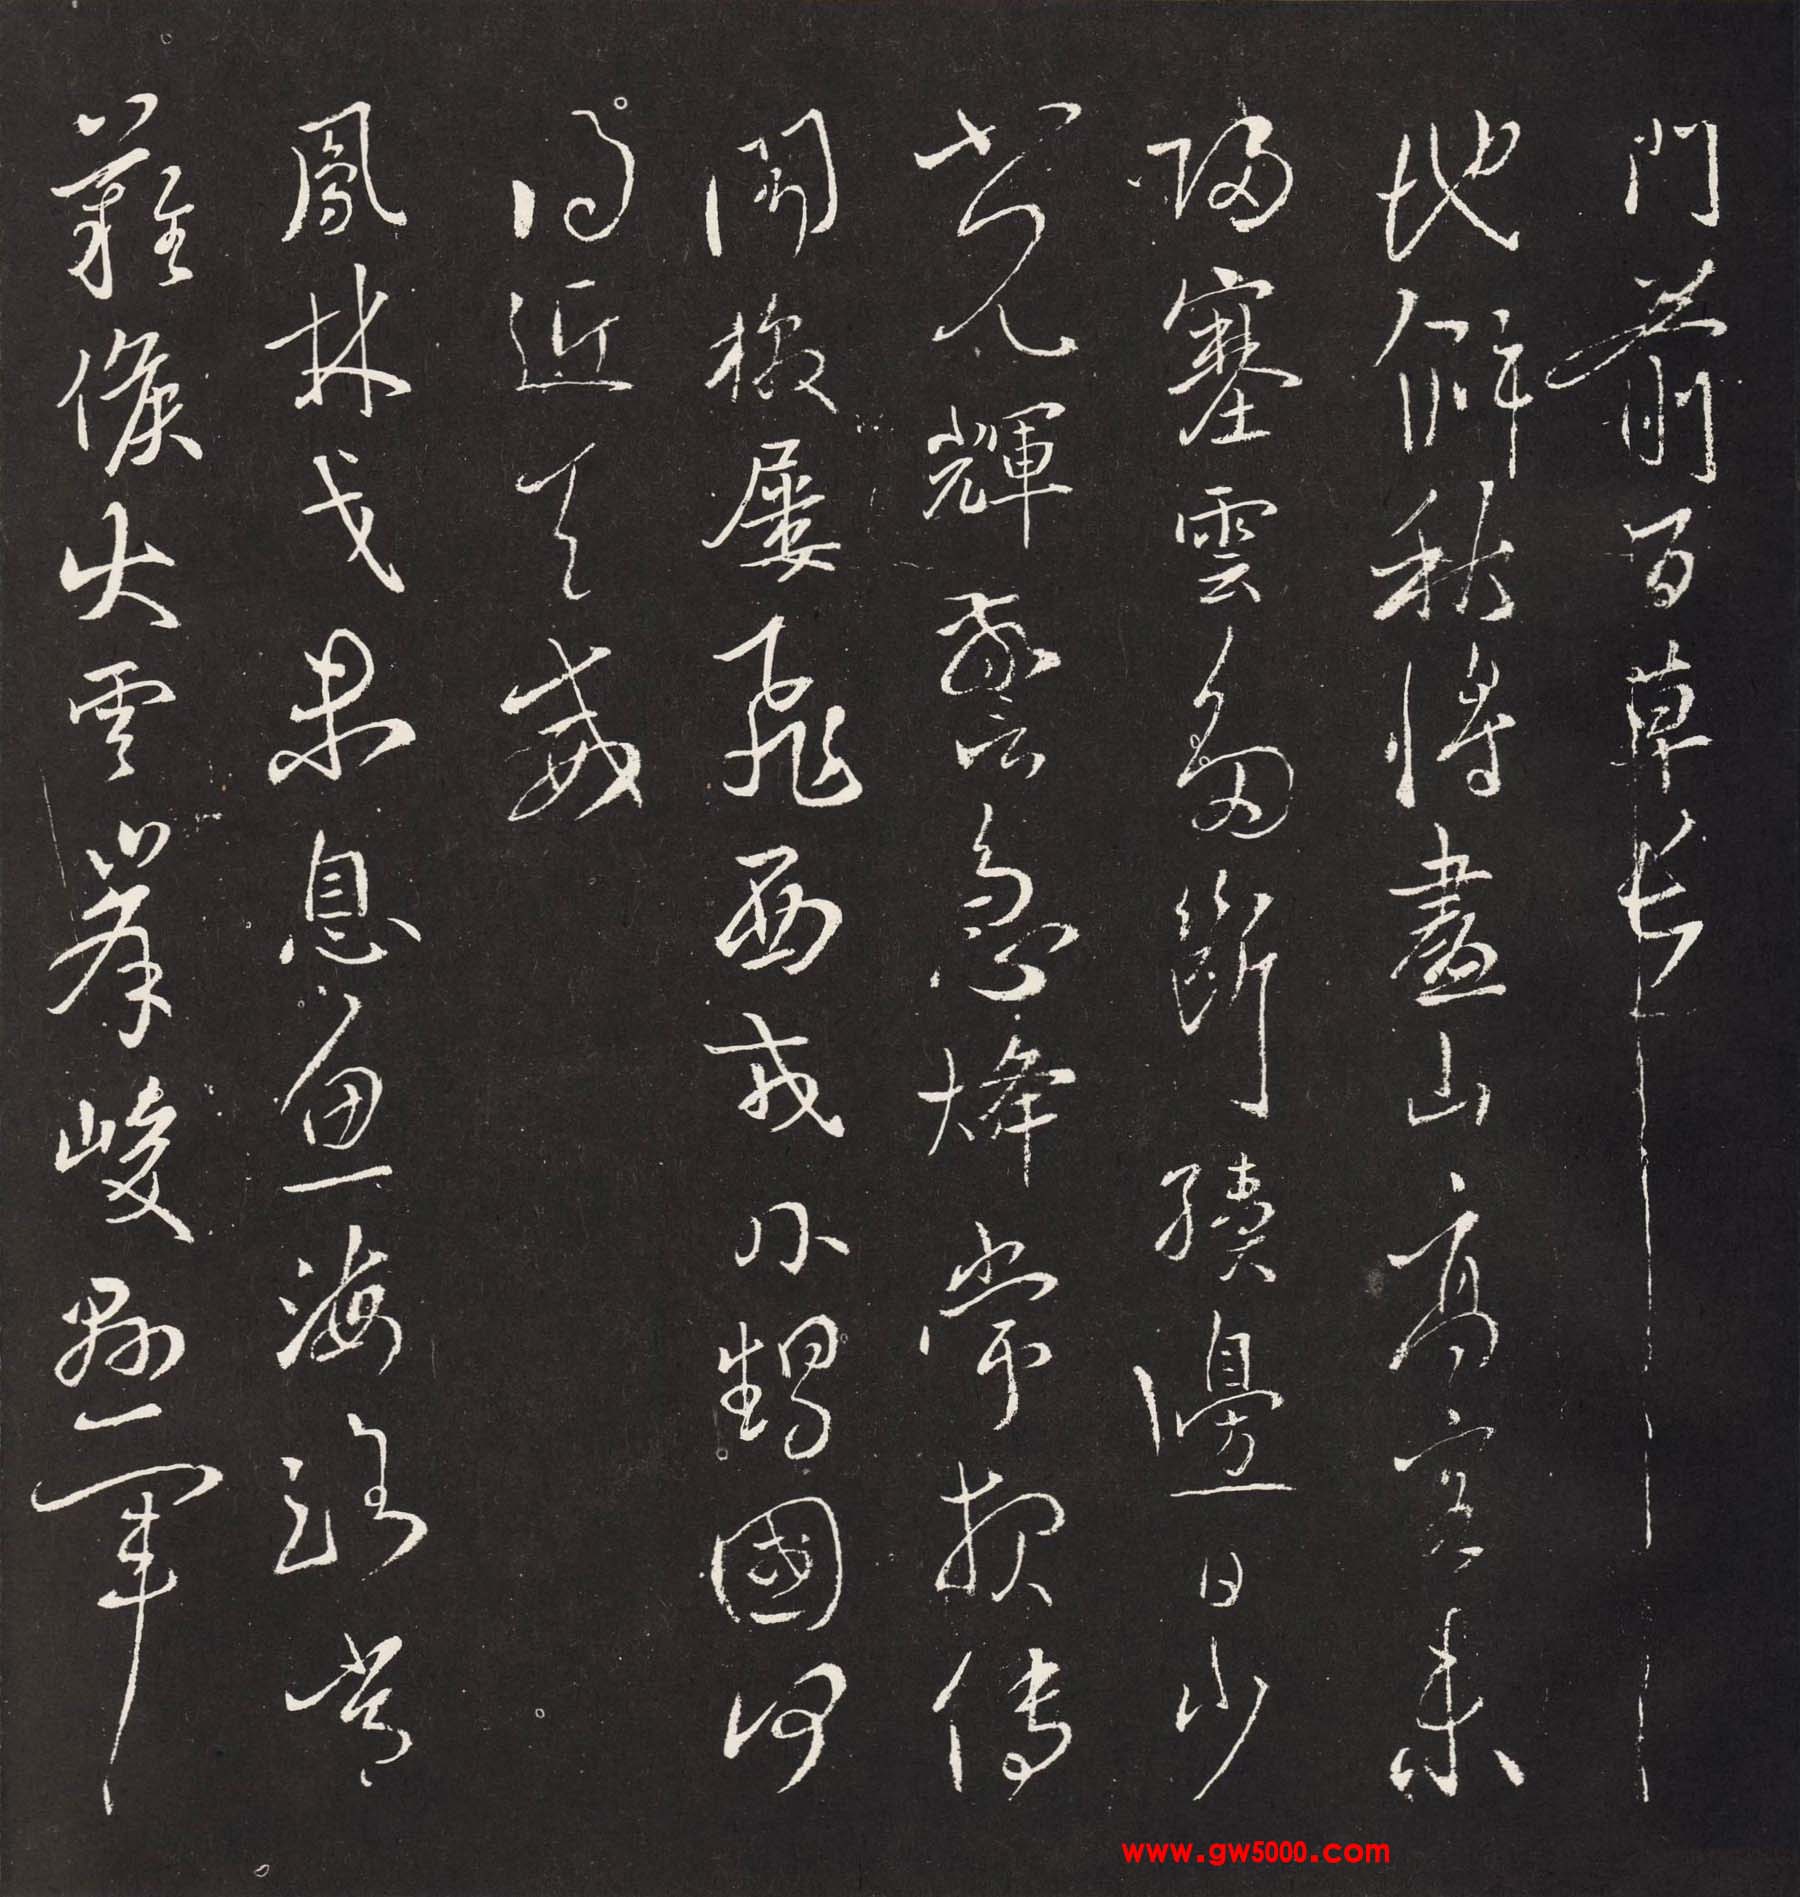 門前百草長
地僻秋將盡山高客未
歸塞雲多斷續邊日少
光輝警急烽常報傳
聞檄屢飛西戎外甥國何
得近天威
鳳林戈果息魚海路常
難候火雲峯峻懸軍
www.gw5000.com